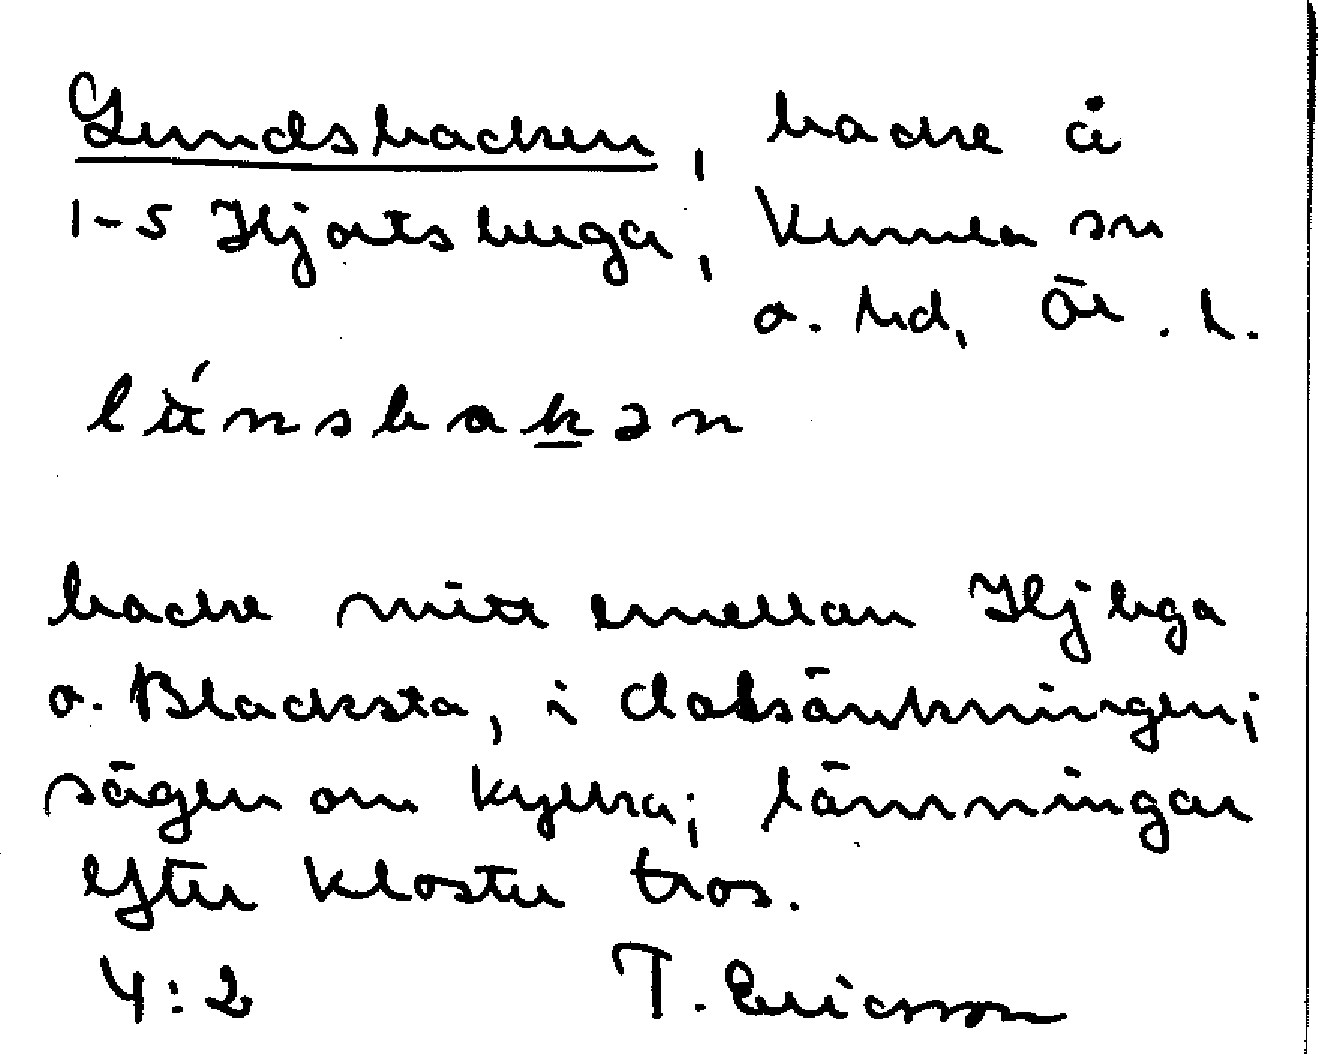 Lundsbacken, backe å
1-5 Hjortsberga, Kumla sn
o. hd, Ör. l.
lúnsbakən
backe mitt emellan Hjbga
o. Blacksta, i dalsänkningen;
sägen om kyrka; lämningar
efter kloster tros.
4:2 T. Ericsson